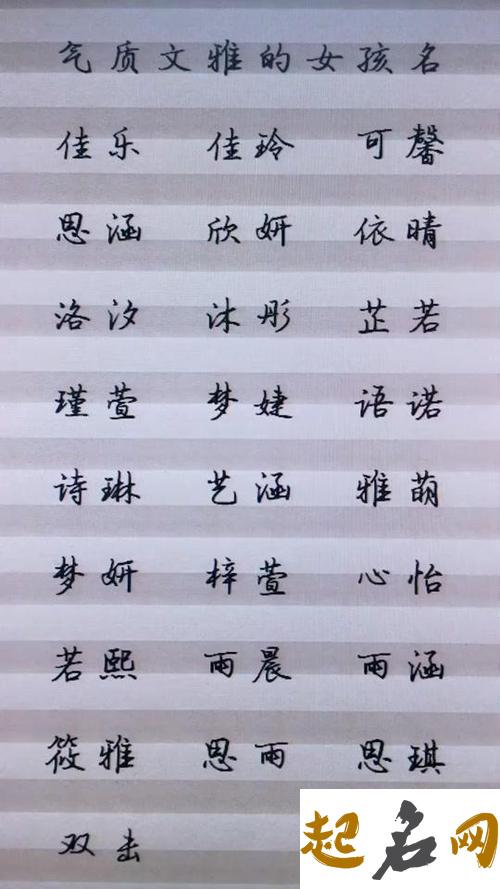 气质文雅的女孩名
佳乐 佳玲 可馨
思涵 欣妍 依晴
洛汐 沐彤 芷若
瑾萱 梦婕 语诺
诗琳 艺涵 雅萌
梦妍 梓萱 心怡
若熙 雨晨 雨涵
筱雅 思雨 思琪
双击
起名网